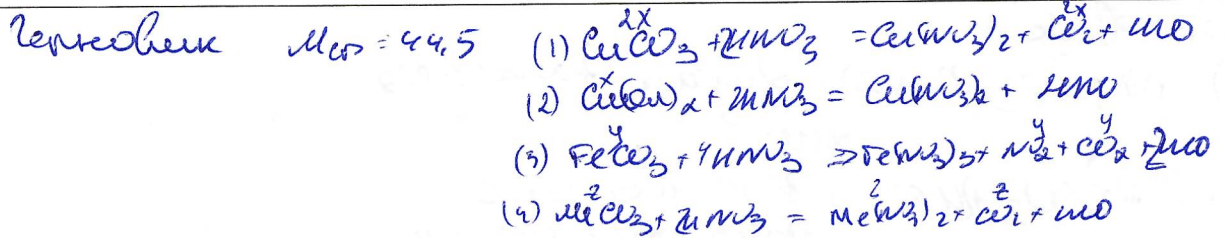 Черновик Mср = 44,5 (1) CuCO3 + 2HNO3 = Cu(NO3)2 + CO2 + H2O
2x 2x
(2) Cu(OH)2 + 2HNO3 = Cu(NO3)2 + 2H2O
x
(3) FeCO3 + 4HNO3 => Fe(NO3)3 + NO2 + CO2 + 2H2O
y y y
(4) MeCO3 + 2HNO3 = Me(NO3)2 + CO2 + H2O
z z z